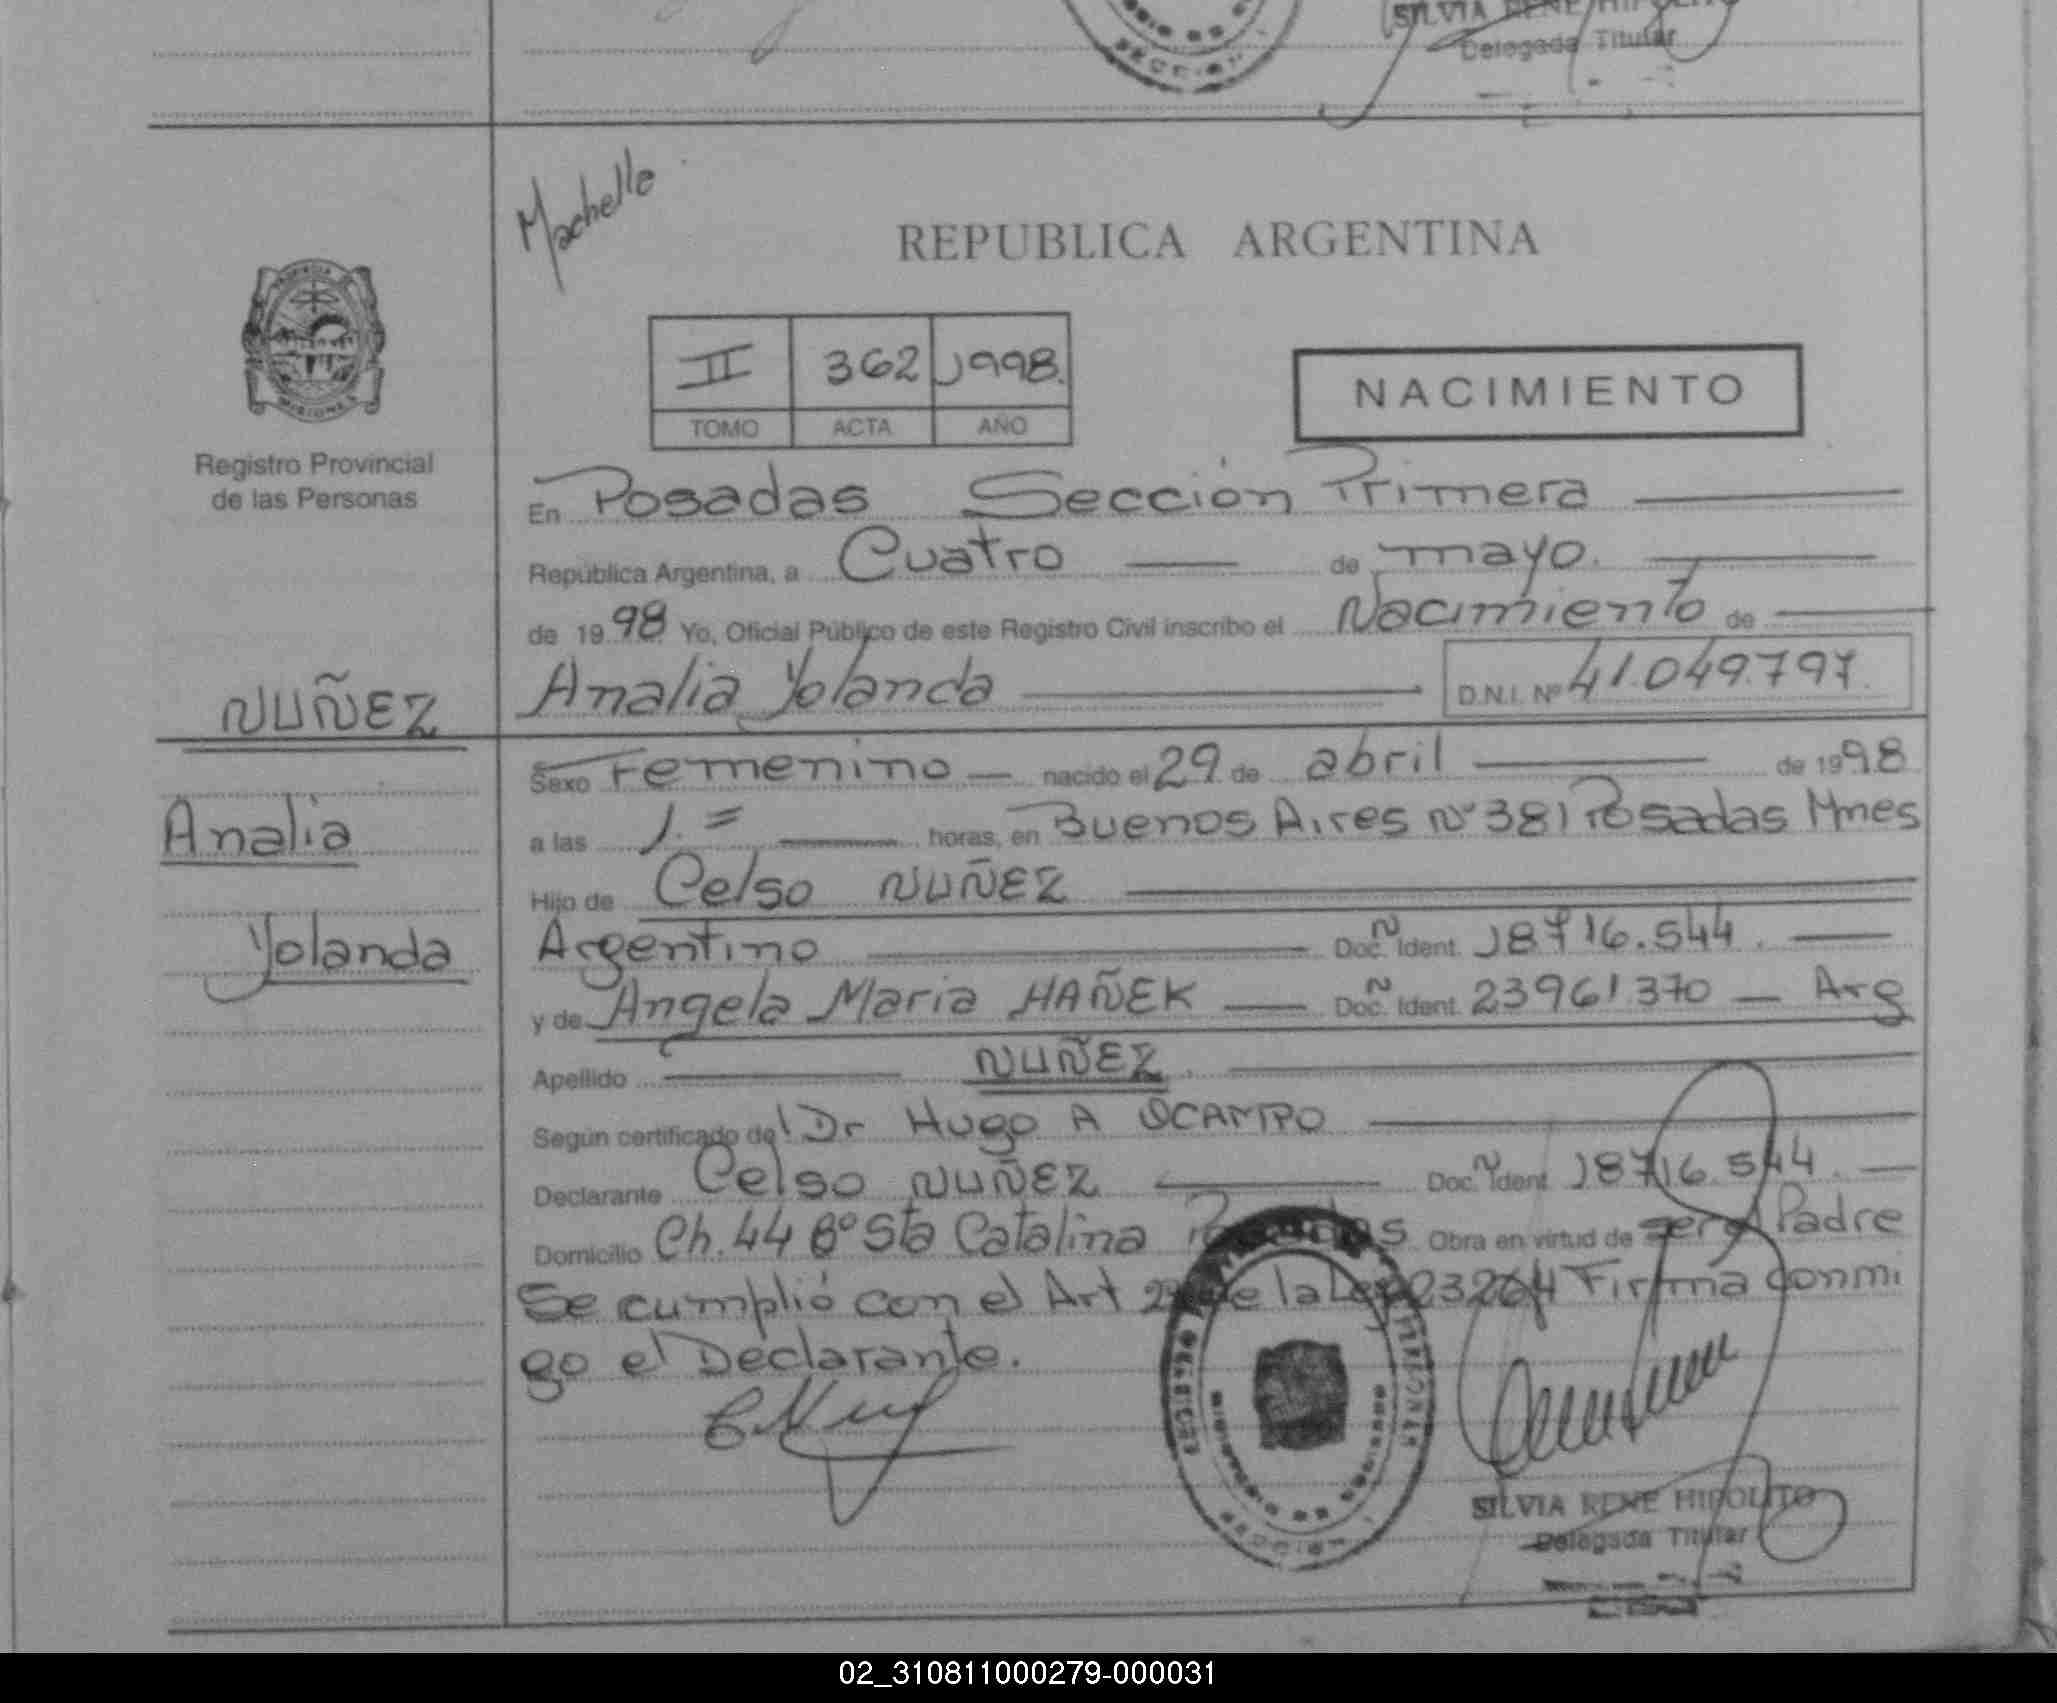 SILVIA RENE HIPOLITO
Delegada Titular
SECCION
Machelle
REPUBLICA ARGENTINA
PROVINCIA
MISIONES
Registro Provincial
de las Personas
II 362 1998.
TOMO ACTA AÑO
NACIMIENTO
En Posadas Sección Primera
República Argentina, a Cuatro de mayo.
de 1998 Yo, Oficial Público de este Registro Civil inscribo el Nacimiento de
Analia Yolanda D.N.I. Nº 41.049.797.
NUÑEZ
Analia
Yolanda
Sexo Femenino nacido el 29 de abril de 1998
a las 1. = horas, en Buenos Aires Nº 381 Posadas Mnes
Hijo de Celso NUÑEZ
Argentino Doc. Ident. 18716.544.
y de Angela Maria HAÑEK Doc. Ident. 23961370 Arg
Apellido NUÑEZ.
Según certificado del Dr Hugo A OCAMPO
Declarante Celso NUÑEZ Doc. Ident. 18716.544.
Domicilio Ch. 44 Bº Sta Catalina Posadas Obra en virtud de ser el Padre
Se cumplió con el Art de la Ley 23264 Firma conmi
go el Declarante.
SILVIA RENE HIPOLITO
Delegada Titular
02_310811000279-000031